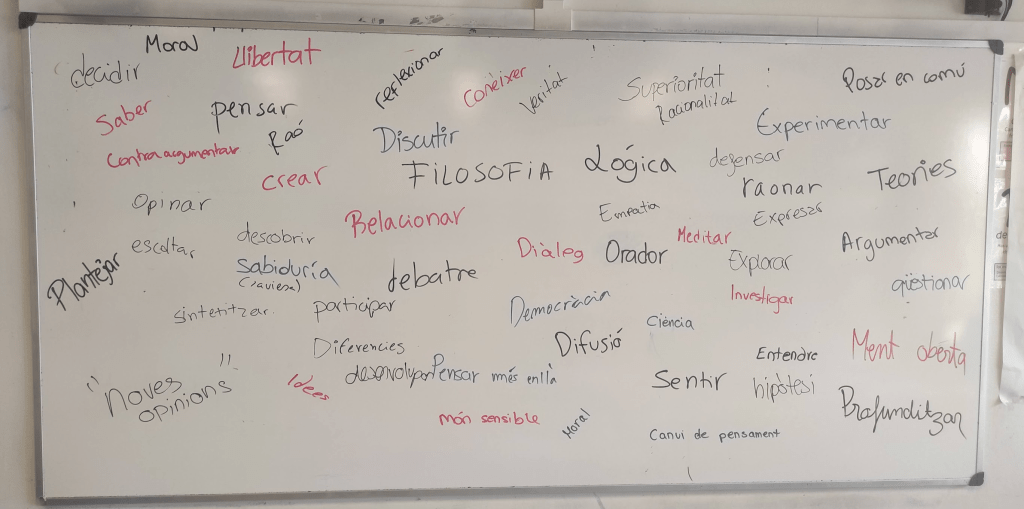 Moral
Llibertat
decidir
reflexionar
Conèixer
Veritat
Superioritat
Racionalitat
Posar en comú
Saber
pensar
Raó
Discutir
Experimentar
Contraargumentar
crear
FILOSOFIA
Lògica
defensar
raonar
Teories
Opinar
Relacionar
Empatia
Expresar
escoltar
descobrir
Diàleg
Orador
Meditar
Explorar
Argumentar
Plantejar
Sabiduría
(saviesa)
debatre
Investigar
qüestionar
sintetitzar.
participar
Democràcia
Ciència
Diferencies
Difusió
Entendre
Ment oberta
"Noves
opinions"
Idees
Pensar més enllà
Sentir
hipòtesi
Profunditzar
món sensible
Moral
Canvi de pensament